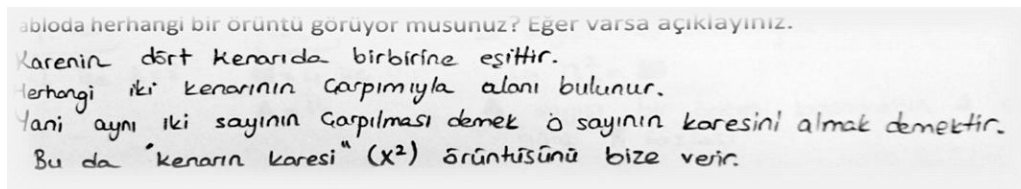 abloda herhangi bir örüntü görüyor musunuz? Eğer varsa açıklayınız.
Karenin dört kenarıda birbirine eşittir.
Herhangi iki kenarının Çarpımıyla alanı bulunur.
Yani aynı iki sayının Çarpılması demek o sayının karesini almak demektir.
Bu da "kenarın karesi" (x²) örüntüsünü bize verir.